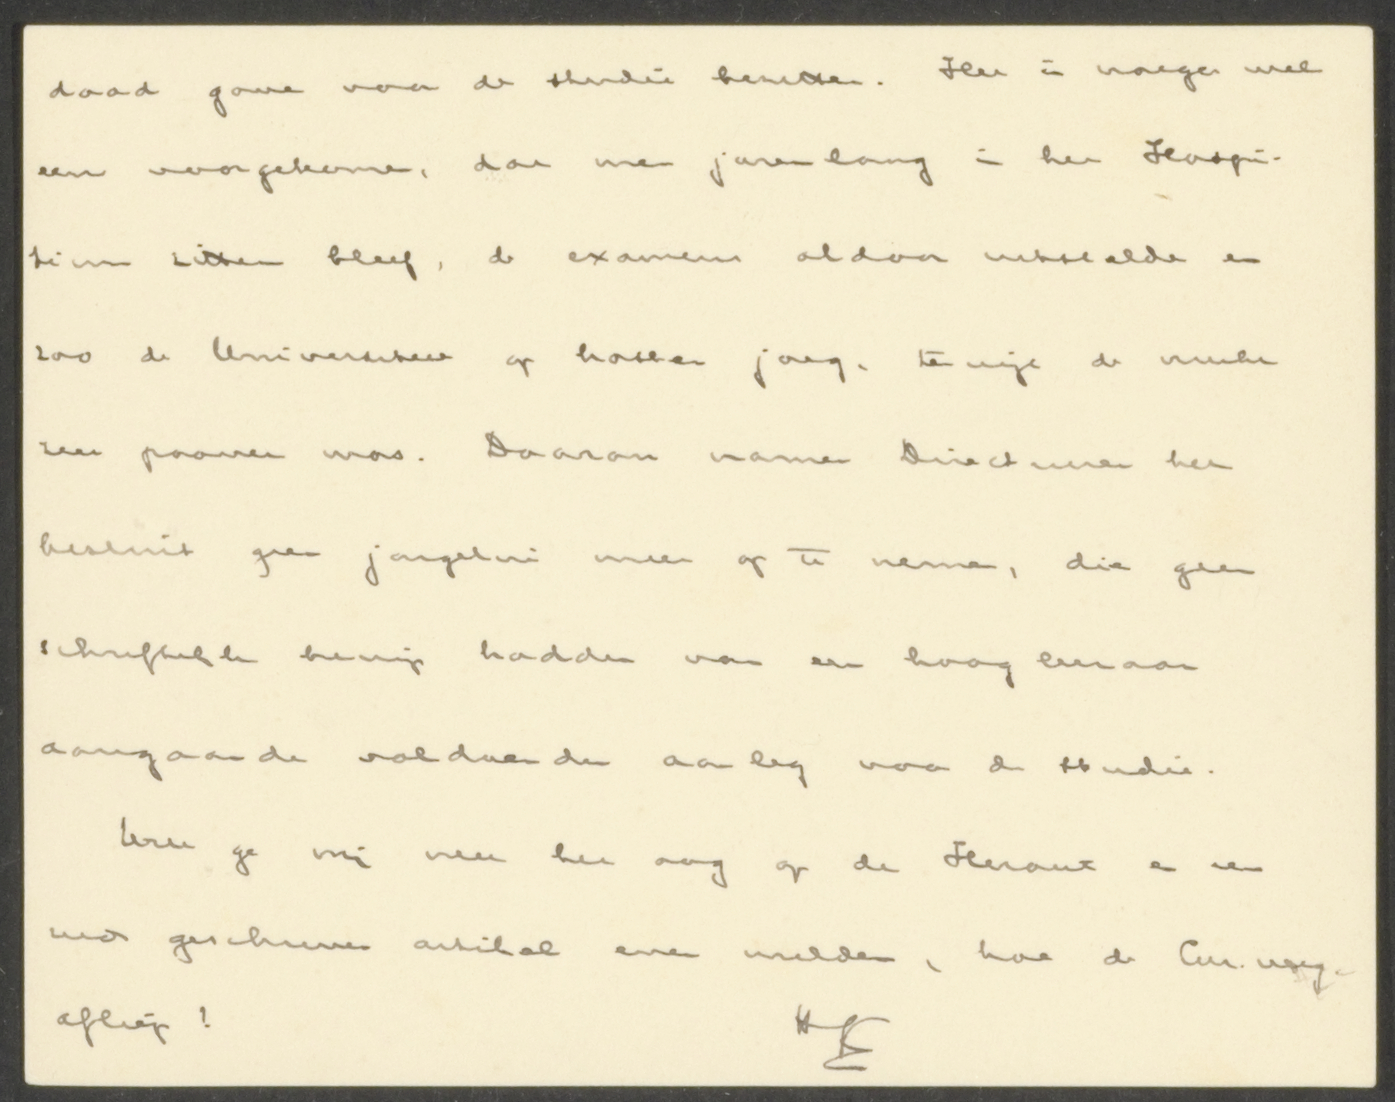 daad gave voor de studie bezitten. Het is vroeger wel
een voorgekomen, dat men jarenlang in het Hospi-
tium zitten bleef, de examens aldoor uitstelde en
zoo de Universiteit op kosten joeg, terwijl de vrucht
zeer poover was. Daarom namen Directeuren het
besluit geen jongelui meer op te nemen, die geen
schriftelijk bewijs hadden van een hoogleeraar
aangaande voldoenden aanleg voor de studie.
Wilt ge mij met het oog op de Heraut en een
geschreven artikel even melden, hoe de Cur. verg.
afliep!